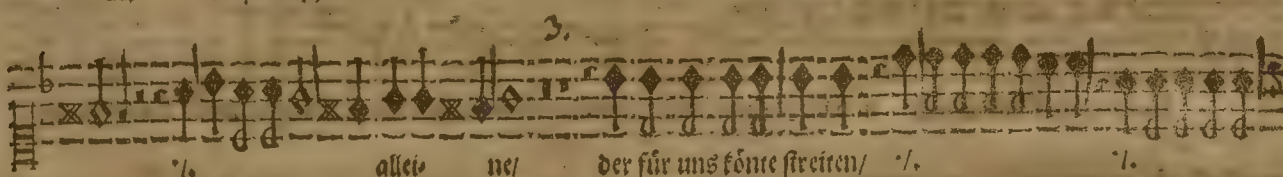 3.
·/. allei⸗ ne/ der für uns könte ſtreiten/ ·/. ·/.